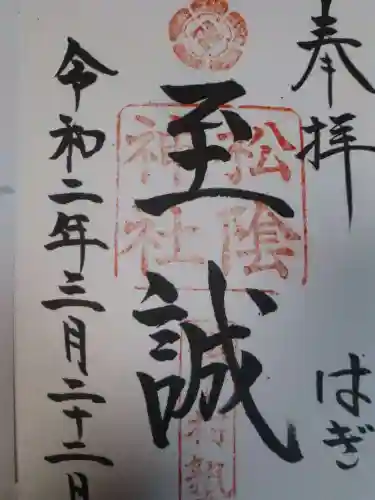 奉拝 はぎ
至誠
松陰
神社
令和二年三月二十二日